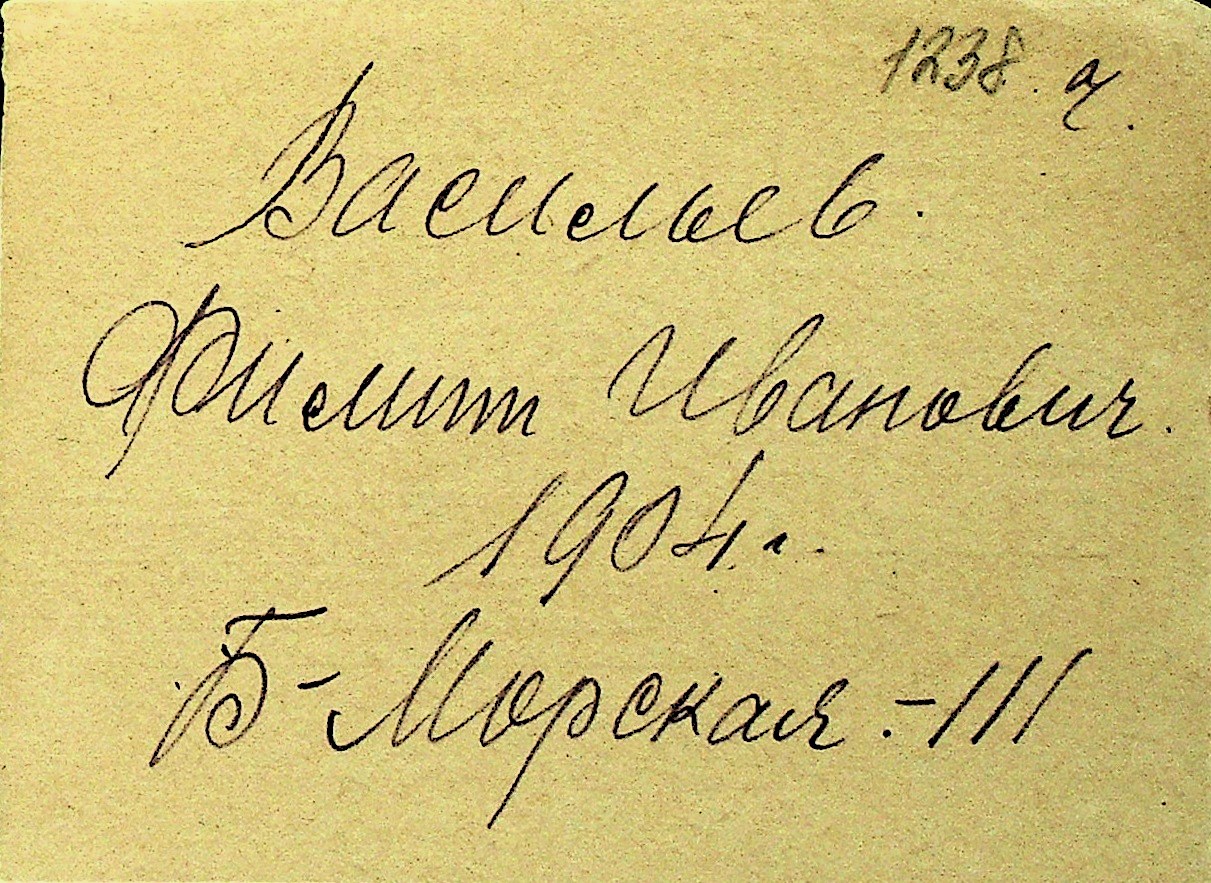 1238. ч.
Васильев.
Филипп Иванович.
1904 г.
Б-Морская.-111